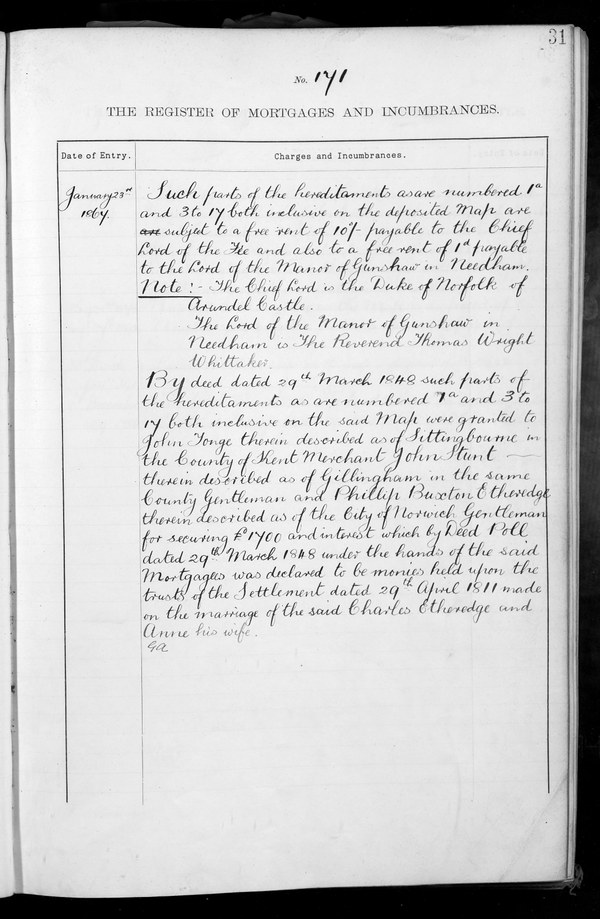 31
No. 171
THE REGISTER OF MORTGAGES AND INCUMBRANCES.
Date of Entry.
Charges and Incumbrances.
January 23rd
1867.
Such parts of the hereditaments as are numbered 1a
and 3 to 17 both inclusive on the deposited Map are
are subject to a free rent of 10/- payable to the Chief
Lord of the Fee and also to a free rent of 1d payable
to the Lord of the Manor of Gunshaw in Needham.
Note :- The Chief Lord is the Duke of Norfolk of
Arundel Castle.
The Lord of the Manor of Gunshaw in
Needham is The Reverend Thomas Wright
Whittaker.
By deed dated 29th March 1848 such parts of
the hereditaments as are numbered 1a and 3 to
17 both inclusive on the said Map were granted to
John Tonge therein described as of Sittingbourne in
the County of Kent Merchant John Stunt —
therein described as of Gillingham in the same
County Gentleman and Phillip Buxton Etheredge
therein described as of the City of Norwich Gentleman
for securing £1700 and interest which by Deed Poll
dated 29th March 1848 under the hands of the said
Mortgagees was declared to be monies held upon the
trusts of the Settlement dated 29th April 1811 made
on the marriage of the said Charles Etheredge and
Anne his wife.
GA